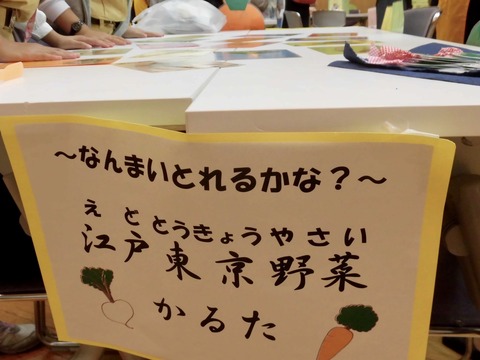 ～なんまいとれるかな？～
えどとうきょうやさい
江戸東京野菜
かるた